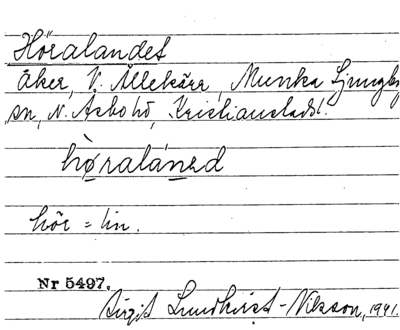 Höralandet
Åker, V. Ållekärr, Munka Ljungby
sn, N. Åsbo hd, Kristianstads l.
hø̀raláned
hör = lin.
Nr 5497.
Birgit Lundkvist-Nilsson, 1941.